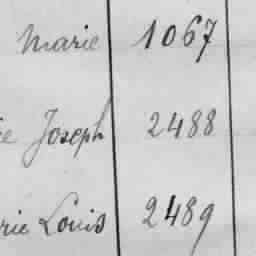 Marie 1067
ie Joseph 2488
rie Louis 2489